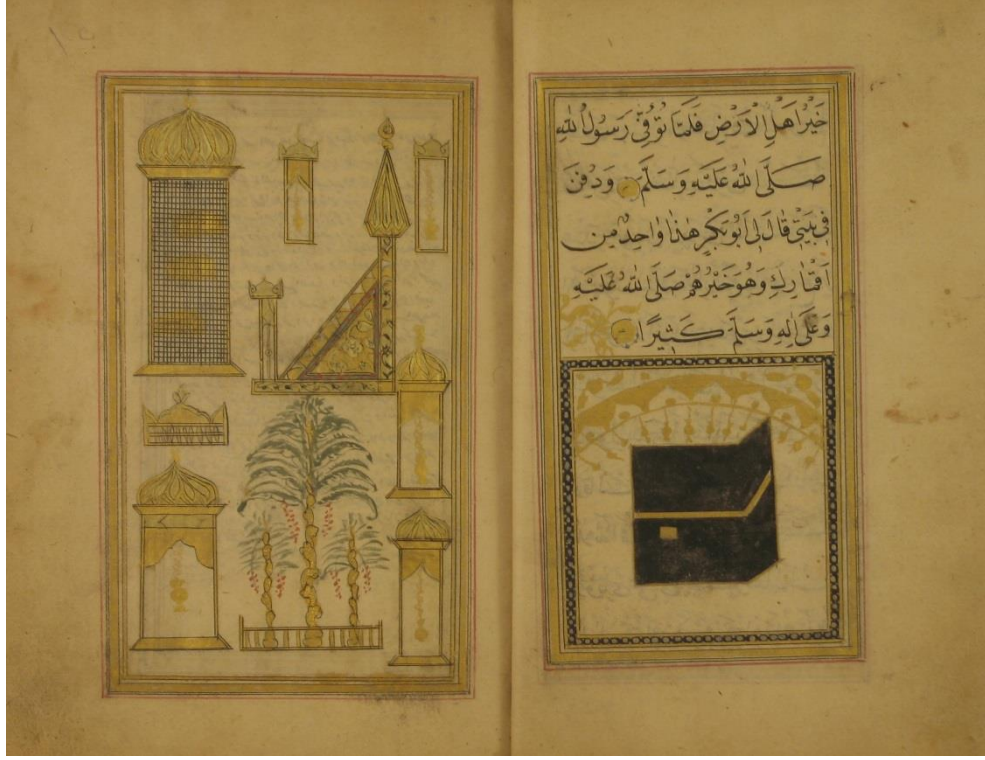 خَيْرُ اَهْلِ الْاَرْضِ فَلَمَّا تُوُفِّيَ رَسُولُ اللهِ
صَلَّى اللهُ عَلَيْهِ وَسَلَّمَ وَدُفِنَ
فِي بَيْتِي قَالَ لِي اَبُو بَكْرٍ هٰذَا وَاحِدٌ مِنْ
اَقْمَارِكِ وَهُوَ خَيْرُهُمْ صَلَّى اللهُ عَلَيْهِ
وَعَلَى اٰلِهِ وَسَلَّمَ كَثِيرًا